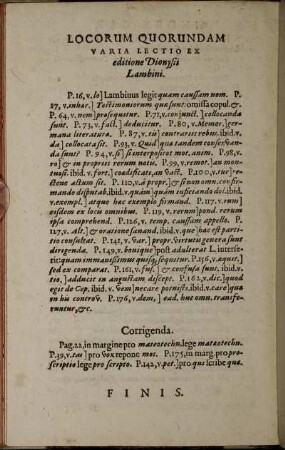 LOCORUM QUORUNDAM
VARIA LECTIO EX
editione Dionysii
Lambini.
P. 16, v. lo] Lambinus legit quam caussam nom. P.
27, v. inhær.] Testimoniorum quæ sunt: omissa copul. &.
P. 64, v. nem] prosequutur. P. 71, v. conjunct.] collocanda
sunt. P. 73, v. fall.] deducitur. P. 80, v. Memor.] ger-
mana literatura. P. 87, v. tis] contrariis rebus. ibid. v.
da] collocata sit. P. 93, v. Quid] qua tandem conservan-
da sunt? P. 94, v. si] si interpellet mot. anim. P. 98, v.
res] & in propriis rerum notis. P. 99, v. remor.] an mon-
tuosi. ibid. v. fort.] coædificatas, an vact. P. 100, v. tuer]
rectene actum sit. P. 110, v. à propr.] & si non omn. confir-
mandi disput abit. ibid. v. quàm] quàm insectando dici. ibid.
v. exempl.] atque hæc exemplo firmand. P. 117. v. rum]
eisdem ex locis omnibus. P. 119, v. rerum] pond. rerum
ipsa comprehend. P. 126, v. temp. caussam appello. P.
127. v. Alt.] & oratione sanand. ibid. v. que] hæc est parti-
tio consultat. P. 141, v. var.] propr. virtutis genera sunt
dirigenda. P. 149, v. benique] post adulterat L. interse-
rit: quam immanissimus quisq; sequitur. P. 156, v. æquit.]
sed ex comparat. P. 161, v. fus.] & confusa sunt. ibid. v.
tio,] adducit in augustam discept. P. 162, v. dic.] quod
egit de Cæp. ibid. v. vem] necare potuisti. ibid. v. care] quæ
in his controv. P. 176, v. dem,] ead. huc omn. transfe-
runtur, &c.
Corrigenda.
Pag. 22, in margine pro mateotechn. lege mateotechn.
P. 39, v. tas] pro vox repone mos. P. 175, in marg. pro pro-
scriptio lege pro scripto. P. 142, v. pet.] pro quæ scribe qua.
FINIS.